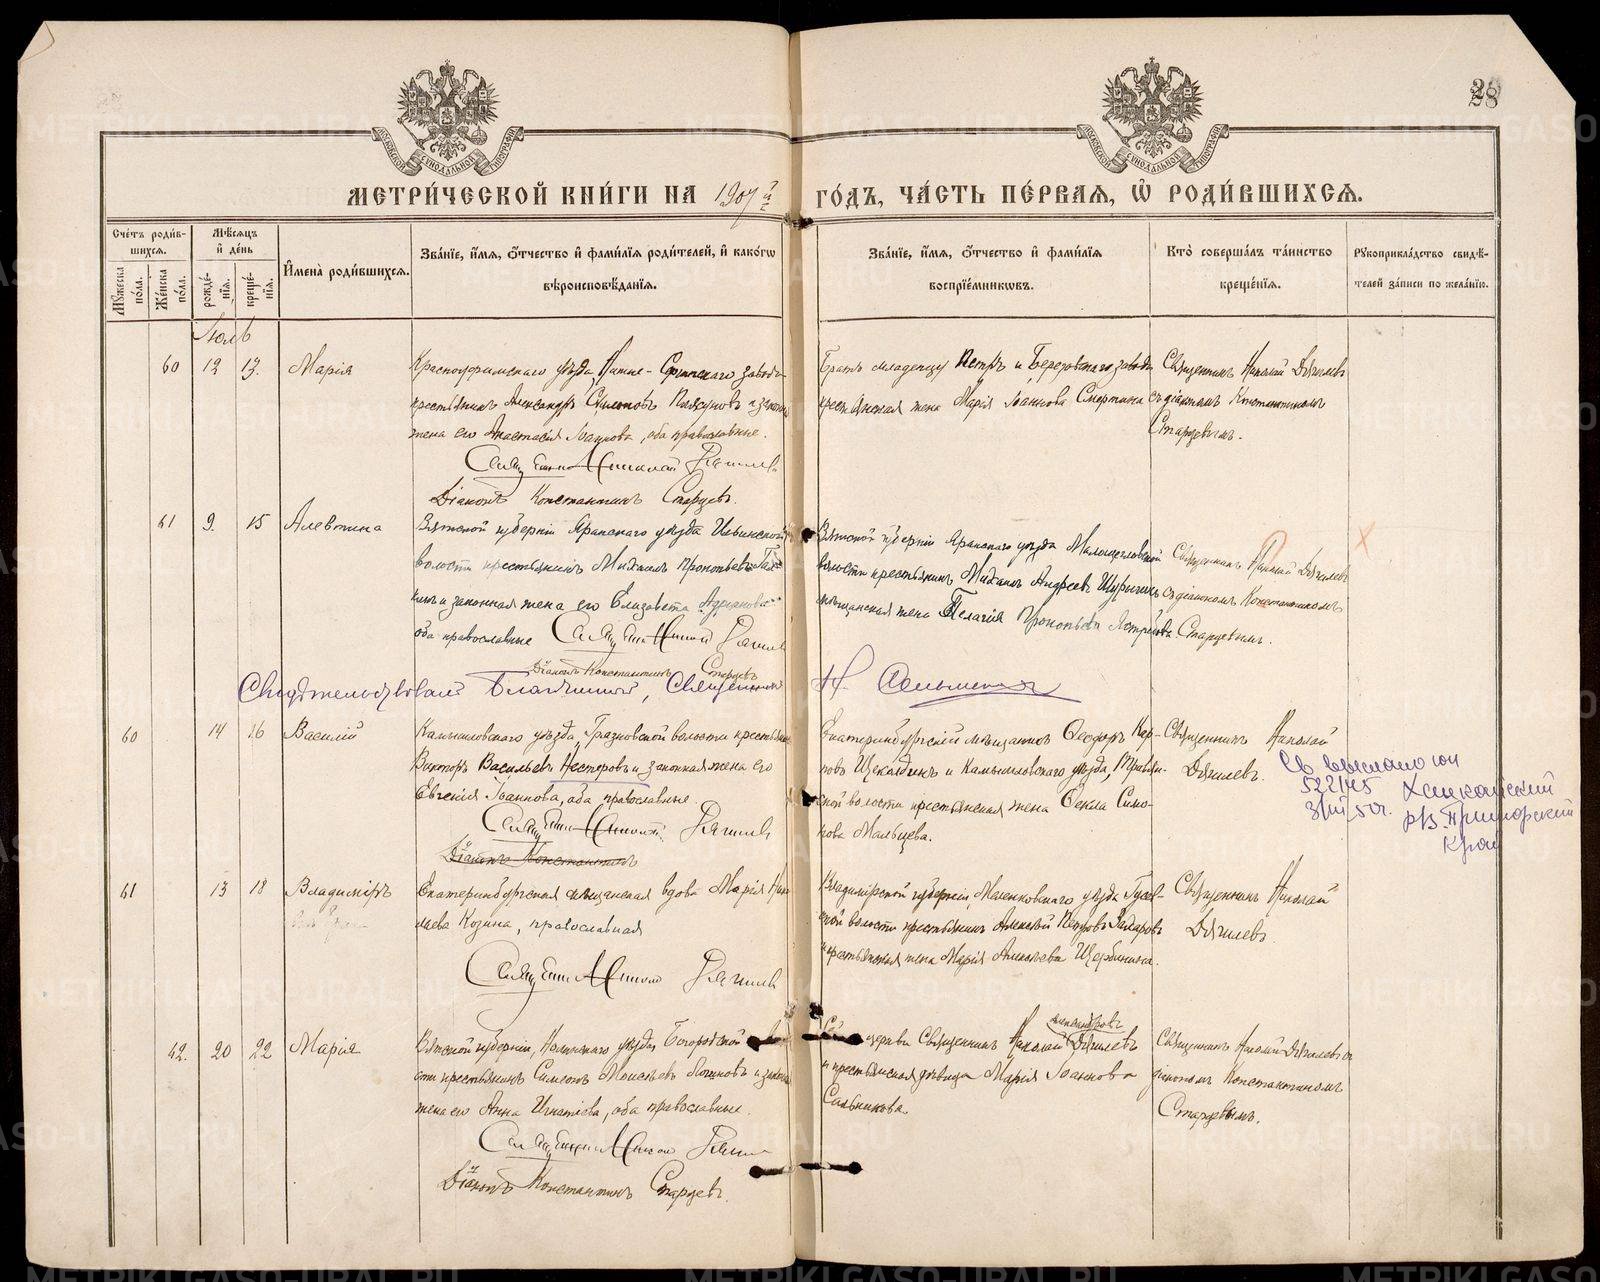 28
МЕТРИ́ЧЕСКОЙ КНИ́ГИ НА 1907й ГО́ДЪ, ЧА́СТЬ ПЕ́РВАЯ, Ѽ РОДИ́ВШИХСЯ.
Сче́тъ роди́в-шихся.
Му́жеска по́ла.
Же́нска по́ла.
Мѣ́сяцъ и де́нь
рожде́-нїя.
креще́-нїя.
И҆мена̀ роди́вшихся.
Зва́нїе, и҆́мя, ѻ҆́тчество и҆ фами́лїя роди́телей, и҆ како́гѡ вѣроисповѣ́данїя.
Зва́нїе, и҆́мя, ѻ҆́тчество и҆ фами́лїя воспрїе́мникѡвъ.
Кто̀ соверша́лъ та́инство креще́нїя.
Рꙋкоприкла́дство свидѣ́-телей за́писи по жела́нїю.
Іюль
60 12 13. Марія
Красноуфимскаго уѣзда, Нижне-Сергинскаго завода
крестьянинъ Александръ и законная
жена его Анастасія Іоаннова, оба православные.
Священникъ Николай Дягилевъ
Діаконъ Константинъ Старцевъ
Братъ младенцу Петръ и Березовскаго завода
крестьянская жена Марія Іоаннова Смертина
Священникъ Николай Дягилевъ
съ діакономъ Константиномъ
Старцевымъ.
61 9. 15 Алевтина
Вятской губерніи Яранскаго уѣзда Ильинской
волости крестьянинъ Михаилъ Прокопьевъ
и законная жена его Елизавета
оба православные Священникъ Николай Дягилевъ
Діаконъ Константинъ Старцевъ
Вятской губерніи Яранскаго уѣзда
волости крестьянинъ Михаилъ Андреевъ
мѣщанская жена Пелагія Прокопьева
Священникъ Николай Дягилевъ
съ діакономъ Константиномъ
Старцевымъ.
Свидѣтельствовалъ Благочинный, Священникъ Н.
60 14 16 Василій
Камышловскаго уѣзда, Грязновской волости крестьянинъ
Викторъ Васильевъ Нестеровъ и законная жена его
Евгенія Іоаннова, оба православные.
Священникъ Николай Дягилевъ
Діаконъ Константинъ
Екатеринбургскій мѣщанинъ Ѳеодоръ Кар-
повъ Щеколдинъ и Камышловскаго уѣзда,
ской волости крестьянская жена Ѳекла Симо-
нова Мальцева.
Священникъ Николай
Дягилевъ.
Св выслано
Ханкайский
р/з. Приморский
Край
61 13 18 Владиміръ
Екатеринбургская мѣщанская вдова Марія Нико-
лаева Козина, православная
Священникъ Николай Дягилевъ
Владимірской губерніи, Меленковскаго уѣзда Гусев-
ской волости крестьянинъ Алексѣй Петровъ Захаровъ
и крестьянская жена Марія Алексѣева Щербинина.
Священникъ Николай
Дягилевъ.
62. 20 22 Марія
Вятской губерніи, Нолинскаго уѣзда Богородской воло-
сти крестьянинъ Симеонъ Моисѣевъ Логиновъ и законная
жена его Анна Игнатіева, оба православные.
Священникъ Николай Дягилевъ
Діаконъ Константинъ Старцевъ.
церкви Священникъ Николай Александровъ Дягилевъ
и крестьянская дѣвица Марія Іоаннова
Сальникова.
Священникъ Николай Дягилевъ съ
діакономъ Константиномъ
Старцевымъ.
METRIKI.GASO-URAL.RU